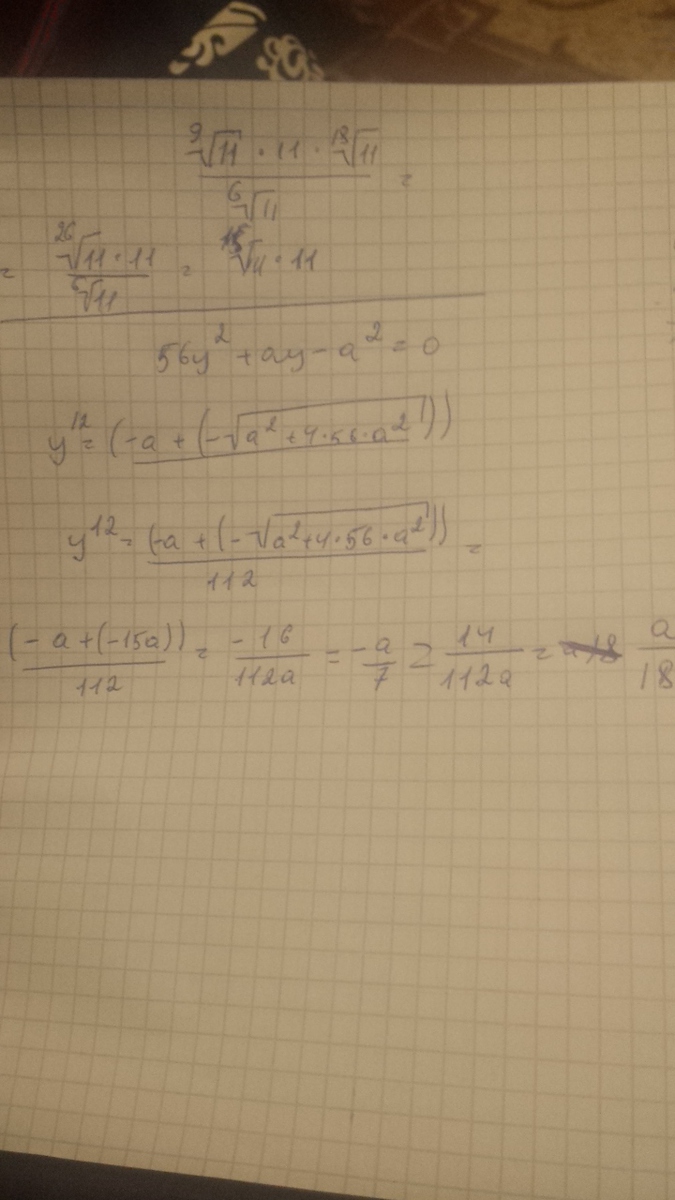 ⁹√11 · 11 · ¹⁸√11 / ⁶√11 =
= ²⁶√11 · 11 / ⁶√11 = √11 · 11
56y² + ay - a² = 0
y¹² = (-a + (-√a² + 4·56·a²))
y¹² = (-a + (-√a² + 4·56·a²)) / 112 =
(-a + (-15a)) / 112 = -16 / 112a = -a / 7 14 / 112a = a / 18